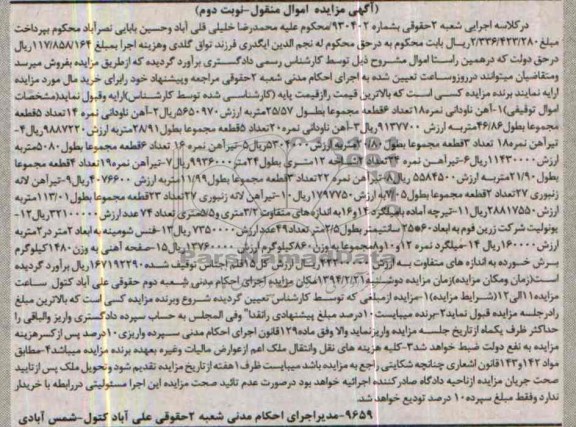 (آگهی مزایده اموال منقول-نوبت دوم)
درکلاسه اجرایی شعبه ۲حقوقی بشماره ۹۳۰۴۰۲محکوم علیه محمدرضا خلیلی قلی آباد وحسین بابایی نصرآباد محکوم بپرداخت
مبلغ ۲/۳۳۶/۴۲۳/۲۸۰ریال بابت محکوم به درحق محکوم له نجم الدین ایگدری فرزند تواق گلدی وهزینه اجرا بمبلغ ۱۱۷/۸۵۸/۱۶۴ریال
درحق دولت که درهمین راستا اموال مشروح ذیل توسط کارشناس رسمی دادگستری برآورد گردیده که ازطریق مزایده بفروش میرسد
ومتقاضیان میتوانند درروزوساعت تعیین شده به اجرای احکام مدنی شعبه ۲حقوقی مراجعه وپیشنهاد خود رابرای خرید مال مورد مزایده
ارایه نمایند برنده مزایده کسی است که بالاترین قیمت راازقیمت پایه (کارشناسی شده توسط کارشناس)ارایه وقبول نماید(مشخصات
اموال توقیفی)۱-آهن ناودانی نمره۱۸تعداد ۶قطعه مجموعا بطول ۲۵/۵۷متربه ارزش ۵۶۵۰۹۷۰ریال۲-آهن ناودانی نمره ۱۴ تعداد ۵قطعه
مجموعا بطول۴۶/۸۶متربه ارزش ۹۱۳۷۷۰۰ریال۳-آهن ناودانی نمره۲۰تعداد ۵قطعه مجموعا بطول۲۸/۹۱متربه ارزش۹۸۸۷۲۲۰ریال۴-
تیرآهن نمره۱۸ تعداد ۳قطعه مجموعا بطول ۲۰/۸۰متربه ارزش۵۳۰۴۰۰۰ریال۵-تیرآهن نمره ۱۶ تعداد ۶قطعه مجموعا بطول۵۰۸۰متربه
ارزش۱۱۴۳۰۰۰۰ریال۶-تیرآهن نمره ۲۴تعداد ۲شاخه ۱۲متری بطول۲۴متر۹۹۳۶۰۰۰ریال۷-تیرآهن نمره۱۹تعداد ۴قطعه مجموعا
بطول۲۱/۹۰متربه ارزش ۵۵۸۴۵۰۰ ریال۸-تیرآهن نمره ۲۲تعداد ۳قطعه مجموعا بطول۱۱/۹۹متربه ارزش ۴۰۷۶۶۰۰ریال۹-تیرآهن لانه
زنبوری ۲۷تعداد ۲قطعه مجموعا بطول۷/۰۵به ارزش ۱۷۹۷۷۵۰ریال۱۰-تیرآهن لانه زنبوری ۲۷تعداد ۲۳قطعه مجموعا بطول۱۱۳/۰۱متربه
ارزش۲۸۸۱۷۵۵۰ریال۱۱-تیرچه آماده بامیلگرد۱۴و۱۶به اندازه های متفاوت ۳/۲متری و۵/۵متری تعداد ۷۴ عدد ارزش ۳۲۱۰۰۰۰۰ریال۱۲-
یونولیت شرکت زرین فوم به ابعاد ۶۰*۲۵ سانتیمتر بطول۲/۵متر تعداد۴۹عدد ارزش۷۳۵۰۰۰۰ریال۱۳-فنس شومینه به ابعاد ۲متر در۲متربه
ارزش۱۶۰۰۰۰ریال ۱۴-میلگرد نمره ۱۲و۱۰و۸مجموعا به وزن ۸۶۰کیلوگرم ارزش ۱۳۷۶۰۰۰۰ ریال۱۵-صفحه آهنی به وزن ۱۴۸۰کیلوگرم
برش خورده به اندازه های متفاوت به ارزش ریال ارزش کل ۱۵قلم اجناس توقیف شده ۱۶۷۱۹۲۲۹۰ریال برآورد گردیده
است(زمان ومکان مزایده)زمان مزایده دوشنبه ۱۳۹۴/۲/۲۱مکان مزایده اجرای احکام مدنی شعبه دوم حقوقی علی آباد کتول ساعت
مزایده۱۱الی۱۲(شرایط مزایده)۱-مزایده ازمبلغی که توسط کارشناس تعیین گردیده شروع وبرنده مزایده کسی است که بالاترین مبلغ
رادرجلسه مزایده قبول نماید۲-برنده میبایست ۱۰درصد مبلغ پیشنهادی رانقدا" وفی المجلس به حساب سپرده دادگستری واریز والباقی را
حداکثر ظرف یکماه ازتاریخ جلسه مزایده واریزنماید والا وفق ماده۱۲۹قانون اجرای احکام مدنی سپرده واریزی۱۰درصد پس ازکسرهزینه
مزایده به نفع دولت ضبط خواهد شد۳-کلیه هزینه های نقل وانتقال ملک اعم ازعوارض مالیات وغیره بعهده برنده مزایده میباشد۴-مطابق
مواد ۱۴۲و۱۴۳قانون اشعاری چنانچه شکایتی راجع به مزایده باشد میبایست ظرف ۱هفته ازتاریخ مزایده تقدیم شود وتحویل ملک پس ازتایید
صحت جریان مزایده ازناحیه دادگاه صادرکننده اجرائیه خواهد بود درصورت عدم تائید صحت مزایده این اجرا مسئولیتی دررابطه با خریدار
ندارد وفقط مبلغ سپرده۱۰ درصد تودیع خواهد شد.
۹۶۵۹-مدیراجرای احکام مدنی شعبه ۲حقوقی علی آباد کتول-شمس آبادی